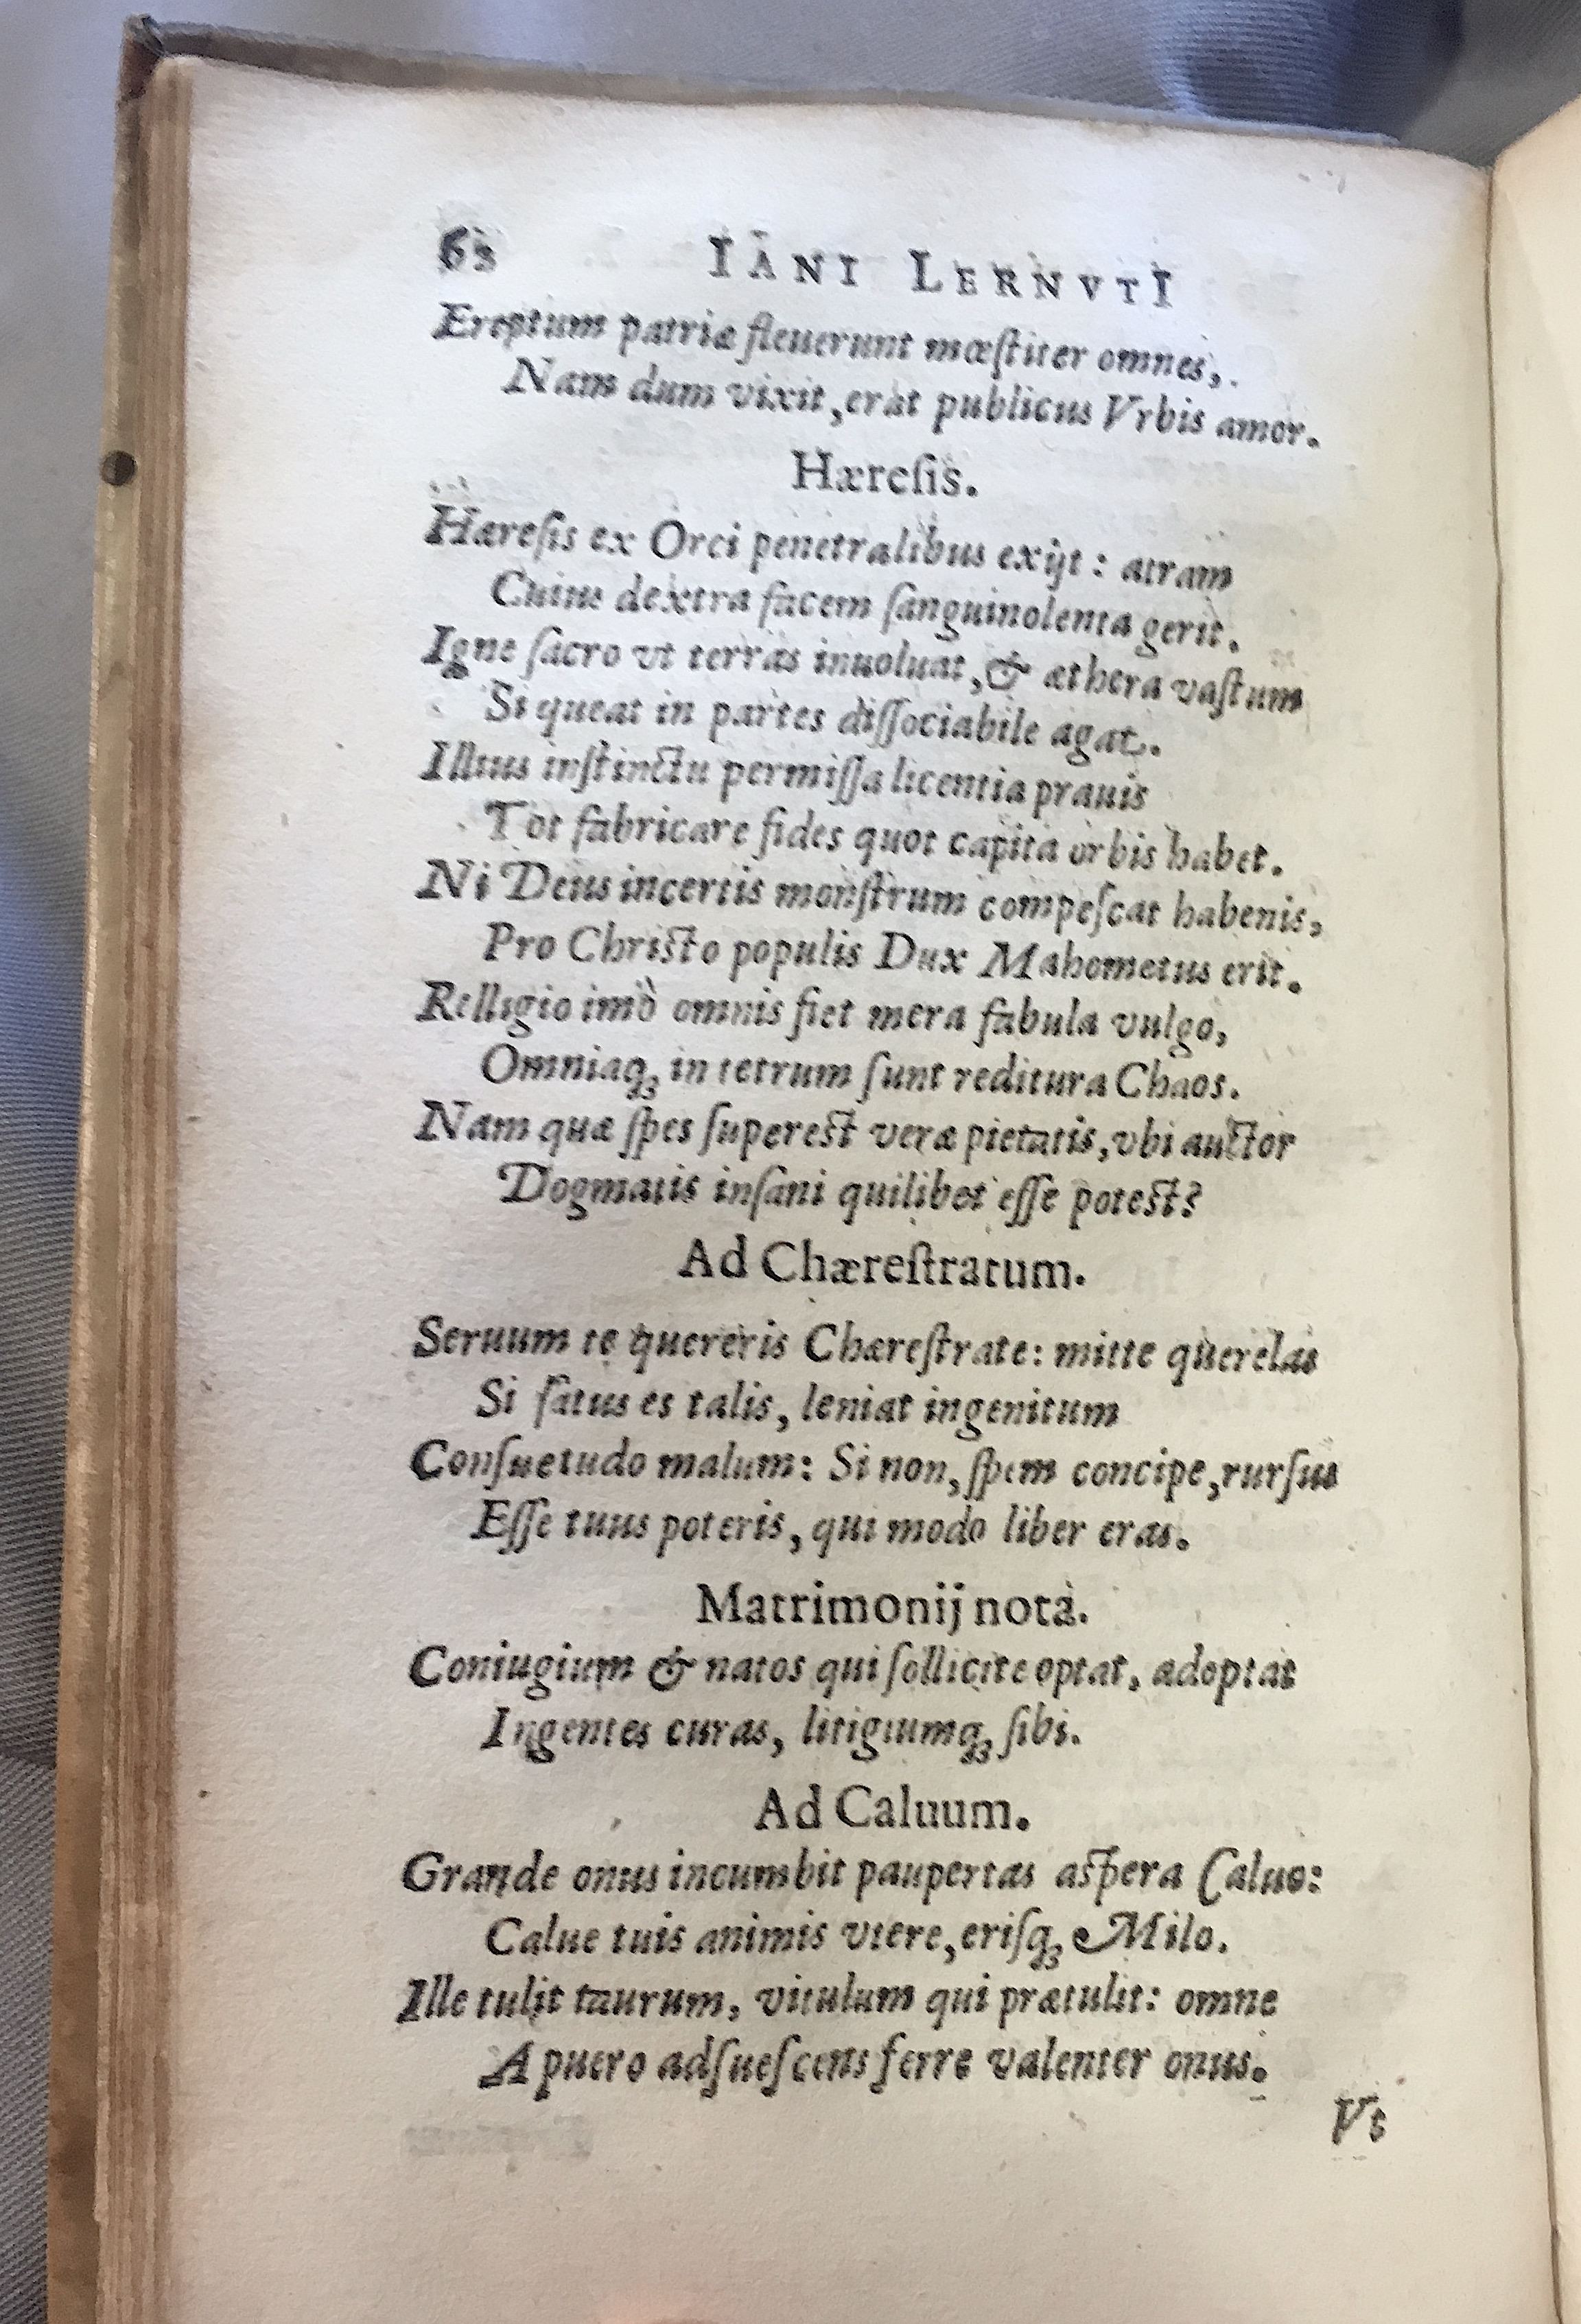 63 IANI LERNVTI
Ereptum patriæ fleuerunt mœſtiter omnes,
Nam dum vixit, erat publicus Vrbis amor.
Hæreſis.
Hæreſis ex Orci penetralibus exijt: atram
Cuius dextra facem ſanguinolenta gerit.
Igne ſacro vt terras inuoluat, & æthera vaſtum
Si queat in partes diſſociabile agat.
Illius inſtinctu permiſſa licentia prauis
Tot fabricare fides quot capita orbis habet.
Ni Deus incertis monſtrum compeſcat habenis,
Pro Chriſto populis Dux Mahometus erit.
Relligio imò omnis fiet mera fabula vulgo,
Omniaq; in tetrum ſunt reditura Chaos.
Nam quæ ſpes ſupereſt veræ pietatis, vbi auctor
Dogmatis inſani quilibet eſſe poteſt?
Ad Chæreſtratum.
Seruum te quereris Chæreſtrate: mitte querelas
Si ſatus es talis, leniat ingenitum
Conſuetudo malum: Si non, ſpem concipe, rurſus
Eſſe tuus poteris, qui modo liber eras.
Matrimonij nota.
Coniugium & natos qui ſollicite optat, adoptat
Ingentes curas, litigiumq; ſibi.
Ad Caluum.
Grande onus incumbit paupertas aſpera Caluo:
Calue tuis animis vtere, eriſq; Milo.
Ille tulit taurum, vitulum qui prætulit: omne
A puero adſueſcens ferre valenter onus.
Vt